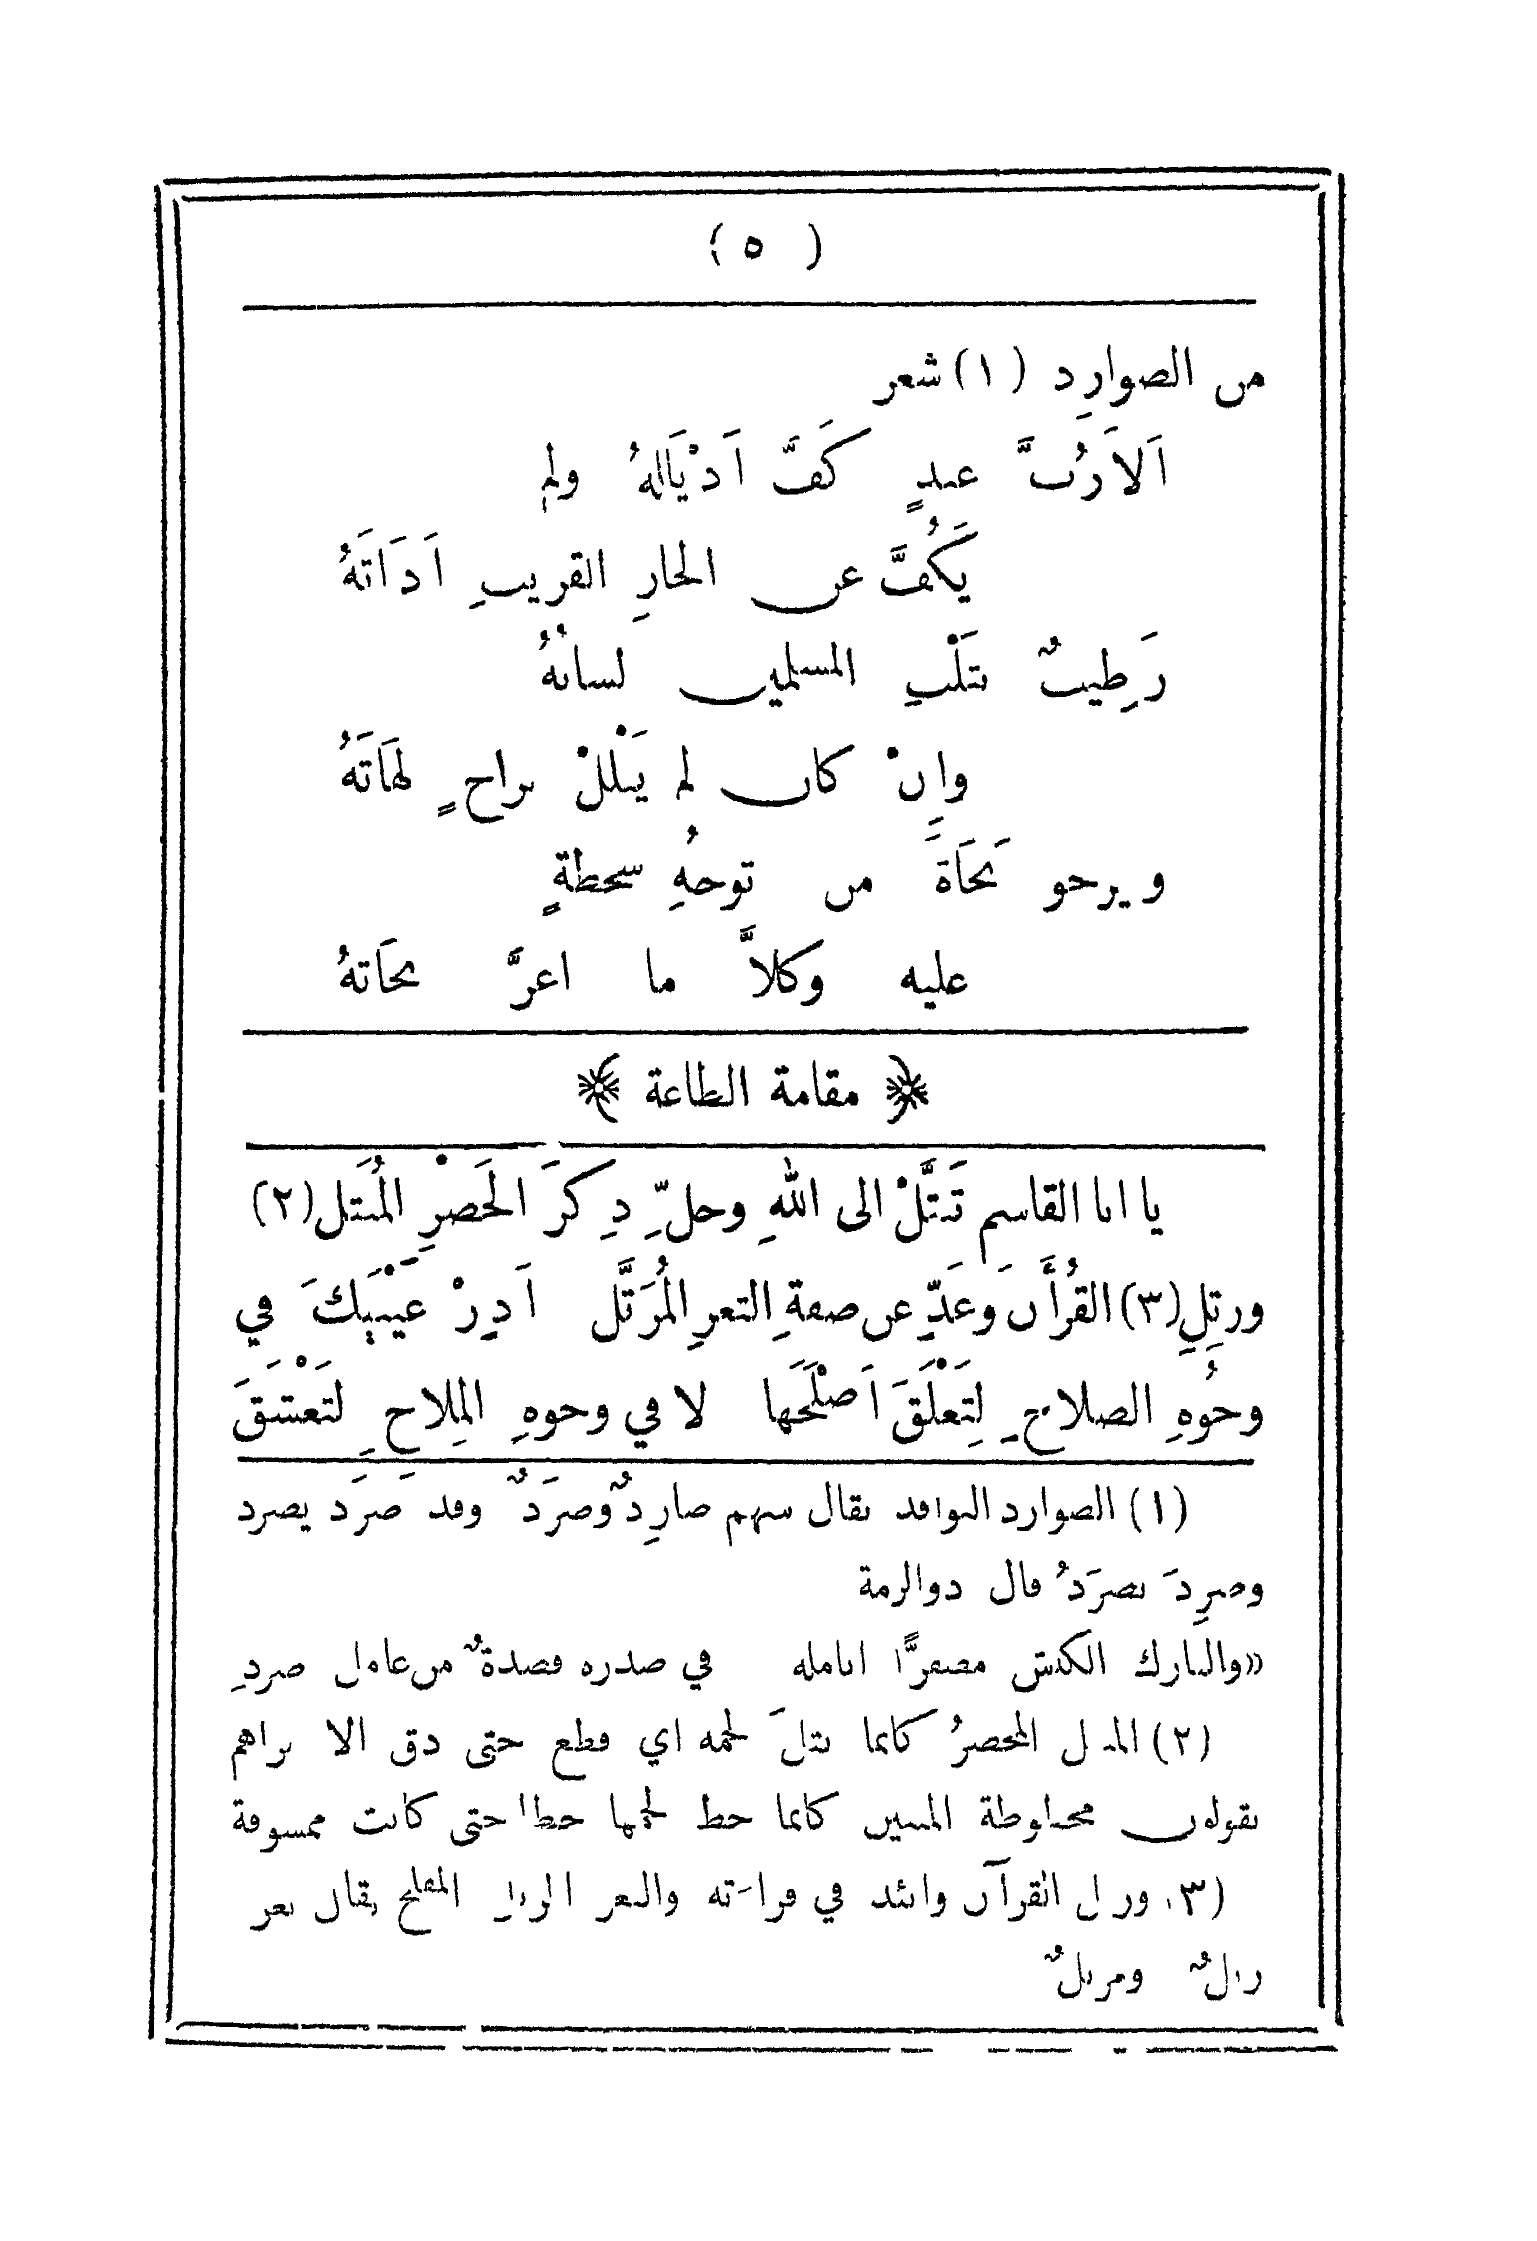 ( ٥ )
من الصوارِد (١) شعر
اَلاَ رُبَّ عبدٍ كَفَّ اَذْيَالهُ ولم
يَكُفَّ عن الجارِ القريبِ اَذَاتَهُ
رَطِيبٌ بثَلْبِ المسلمين لسانُهُ
واِنْ كان لم يَبْلُلْ براحٍ لهَاتَهُ
ويرجو نَجَاةً من توجهِ سخطةٍ
عليه وكلاَّ ما اعزَّ نجَاتهُ
مقامة الطاعة
يا ابا القاسم تَبَتَّلْ الى اللهِ وخلِّ ذِكرَ الخَصْرِ المُبَتل (٢)
ورتِلِ (٣) القُرأَن وَعَدِّ عن صفةِ الثغرِ المُرَتَّل اَدِرْ عَيْنَيْكَ في
وجُوهِ الصلاحِ لِتَعْلَقَ اَصْلَحَها لا في وجوهِ المِلاحِ لتَعْشَقَ
(١) الصوارد النوافذ يقال سهم صارِدٌ وصرَدٌ وقد صَرَد يصرد
وصرِدَ يصرَدُ قال ذوالرمة
«والتارك الكبش مصفرًّا انامله في صدره قصدةٌ من عامل صردِ
(٢) المبتل المخصرُ كانما بتلَ لحمه اي قطع حتى دق الا تراهم
يقولون محطوطة المتنين كانما حط لحمها حطا حتى كانت ممسوقة
(٣) ورتل القرآن واتئد في قراءته والثغر المرتل المفلج يقال ثغر
رتلٌ ومرتلٌ